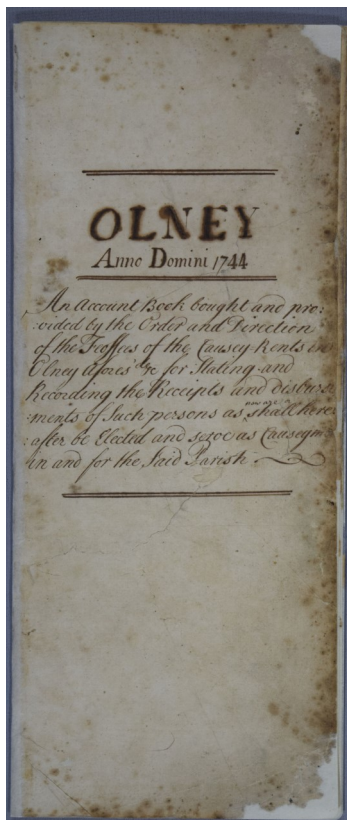 OLNEY
Anno Domini 1744
An Account Book bought and pro:
:vided by the Order and Direction
of the Feoffees of the Causey Rents in
Olney afores.d &c for Stating and
Recording the Receipts and disburse
:ments of such persons as now are & shall here:
:after be Elected and serve as Causeym
in and for the said Parish.